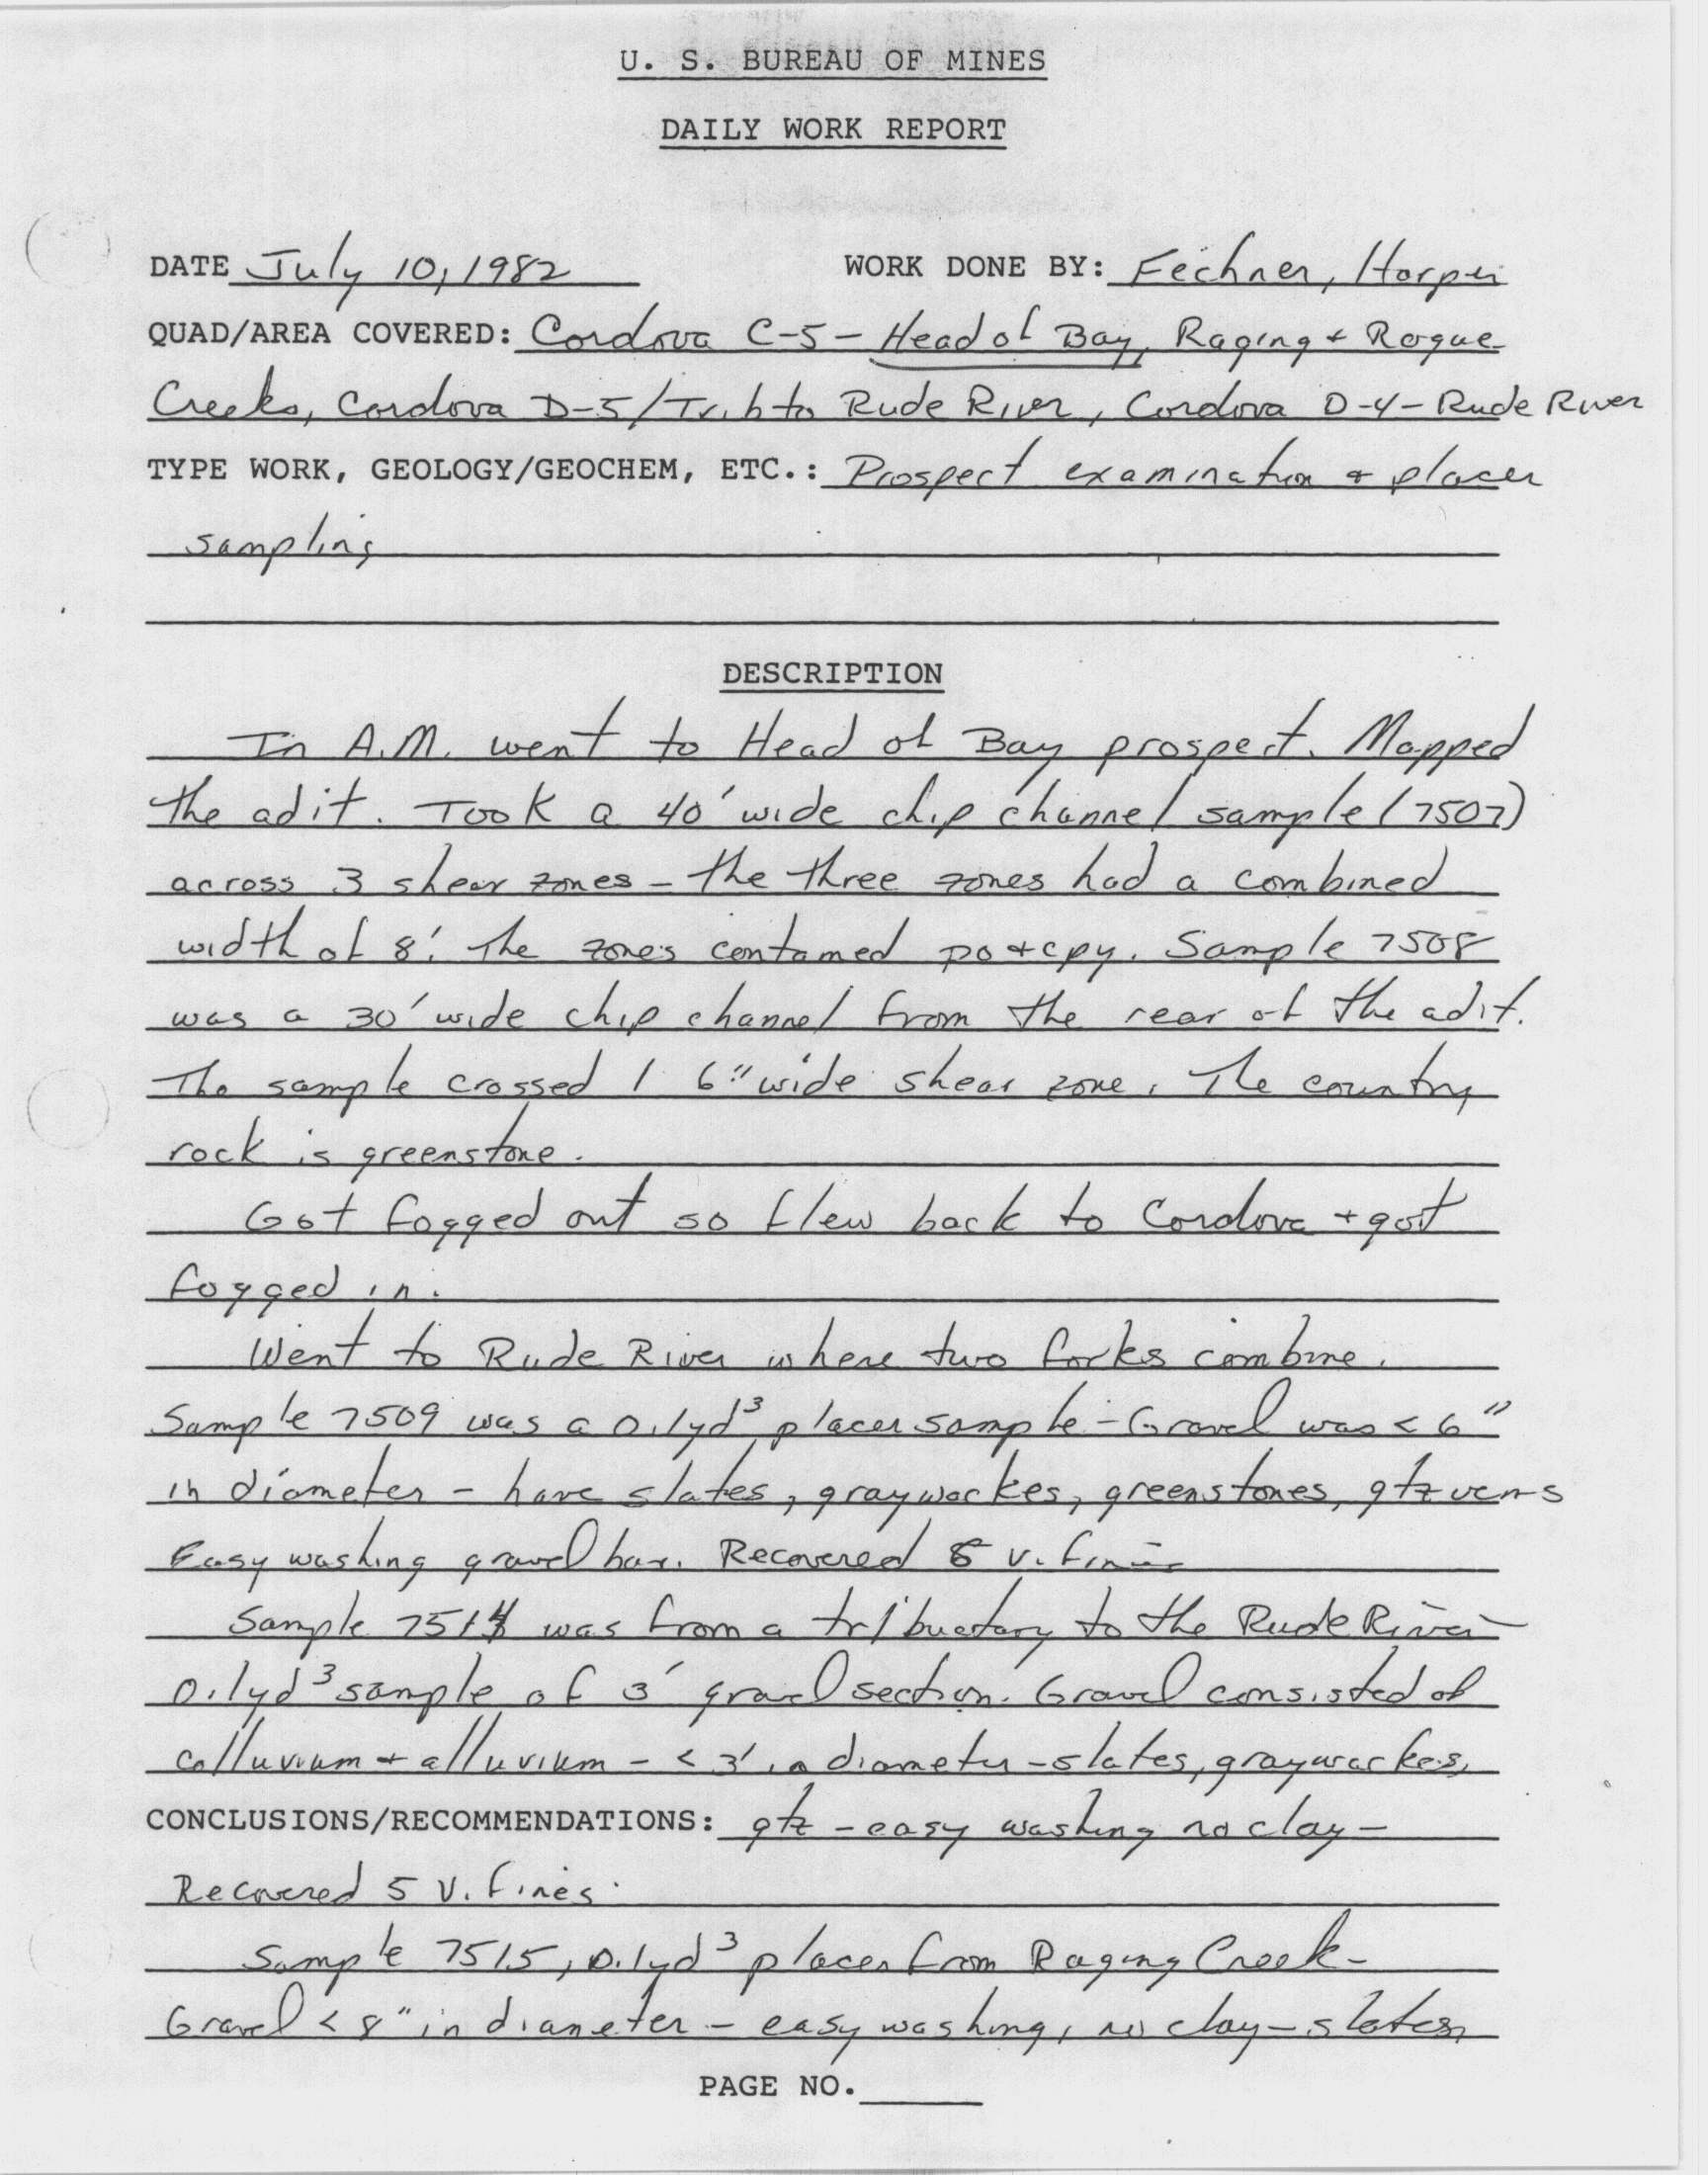 U. S. BUREAU OF MINES
DAILY WORK REPORT
DATE July 10, 1982 WORK DONE BY: Fechner, Harper
QUAD/AREA COVERED: Cordova C-5 - Head of Bay, Raging + Rogue
Creeks, Cordova D-5/Trib to Rude River, Cordova D-4 - Rude River
TYPE WORK, GEOLOGY/GEOCHEM, ETC.: Prospect examination + placer
sampling
DESCRIPTION
In A.M. went to Head of Bay prospect. Mapped
the adit. Took a 40' wide chip channel sample (7507)
across 3 shear zones - the three zones had a combined
width of 8'. The zones contained po + cpy. Sample 7508
was a 30' wide chip channel from the rear of the adit.
The sample crossed 1 6" wide shear zone. The country
rock is greenstone.
Got fogged out so flew back to Cordova + got
fogged in.
Went to Rude River where two forks combine.
Sample 7509 was a 0.1yd³ placer sample - Gravel was < 6"
in diameter - have slates, graywackes, greenstones, qtz veins
Easy washing gravel bar. Recovered 8 v. fines
Sample 7514 was from a tributary to the Rude River -
0.1yd³ sample of 3' gravel section. Gravel consisted of
colluvium + alluvium - < 3' in diameter - slates, graywackes,
CONCLUSIONS/RECOMMENDATIONS: qtz - easy washing no clay -
Recovered 5 v. fines.
Sample 7515, 0.1yd³ placer from Raging Creek -
Gravel < 8" in diameter - easy washing, no clay - slates,
PAGE NO.